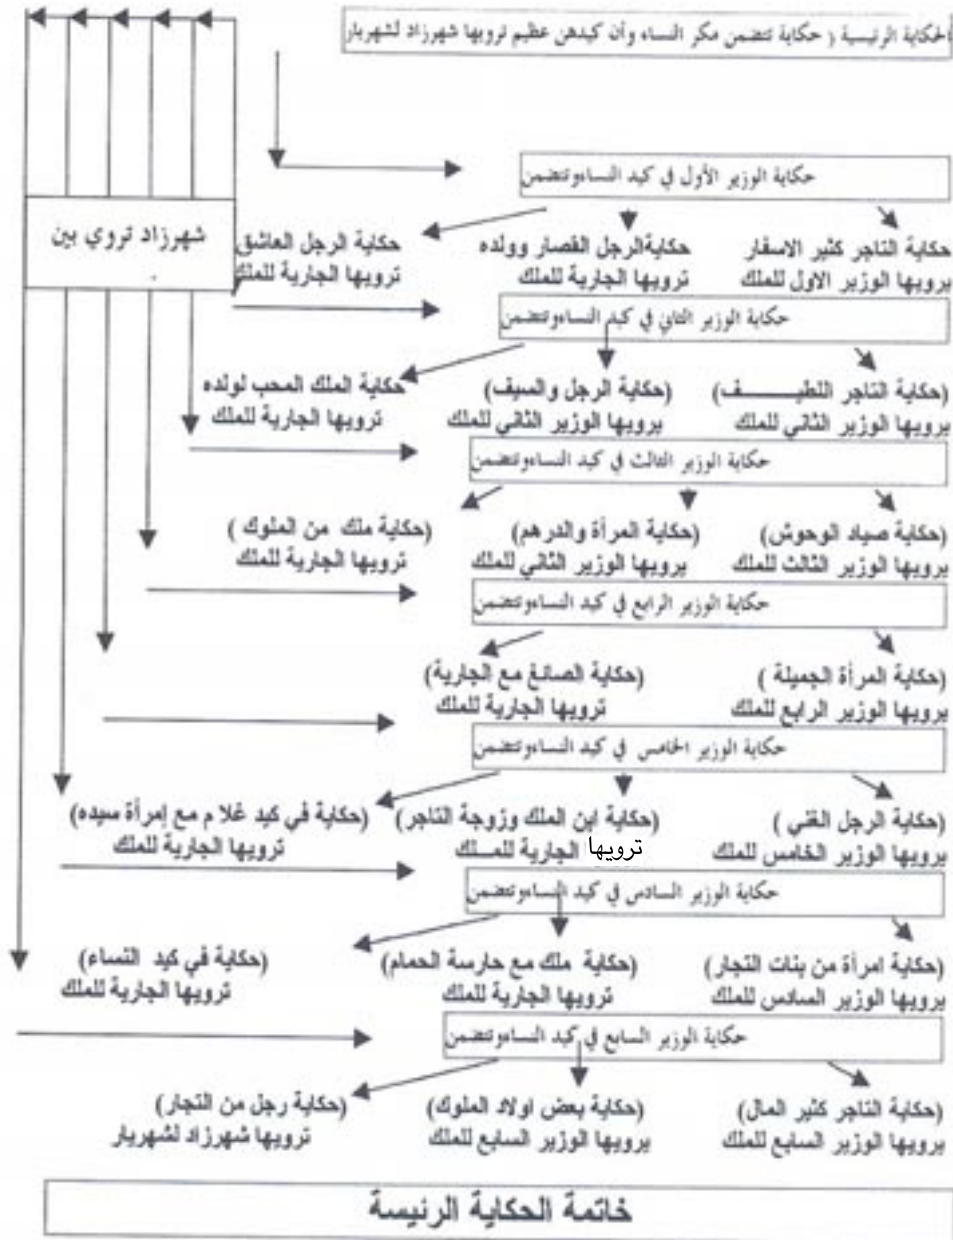 الحكاية الرئيسية ( حكاية تتضمن مكر النساء وأن كيدهن عظيم ترويها شهرزاد لشهريار
حكاية الوزير الأول في كيد النساءوتتضمن
شهرزاد تروي بين
.
حكاية التاجر كثير الاسفار
يرويها الوزير الاول للملك
حكايةالرجل القصار وولده
ترويها الجارية للملك
حكاية الرجل العاشق
ترويها الجارية للملك
حكاية الوزير الثاني في كيد النساءوتتضمن
(حكاية التاجر اللطيـــــــف)
يرويها الوزير الثاني للملك
(حكاية الرجل والسيف)
يرويها الوزير الثاني للملك
حكاية الملك المحب لولده
ترويها الجارية للملك
حكاية الوزير الثالث في كيد النساءوتتضمن
(حكاية صياد الوحوش)
يرويها الوزير الثالث للملك
(حكاية المرأة والدرهم)
يرويها الوزير الثاني للملك
(حكاية ملك من الملوك )
ترويها الجارية للملك
حكاية الوزير الرابع في كيد النساءوتتضمن
(حكاية المرأة الجميلة )
يرويها الوزير الرابع للملك
(حكاية الصائغ مع الجارية)
ترويها الجارية للملك
حكاية الوزير الخامس في كيد النساءوتتضمن
(حكاية الرجل الغني )
يرويها الوزير الخامس للملك
(حكاية ابن الملك وزوجة التاجر)
ترويها الجارية للمـــلك
(حكاية في كيد غلا م مع إمرأة سيده)
ترويها الجارية للملك
حكاية الوزير السادس في كيد النساءوتتضمن
(حكاية امرأة من بنات التجار)
يرويها الوزير السادس للملك
(حكاية ملك مع حارسة الحمام)
ترويها الجارية للملك
(حكاية في كيد النساء)
ترويها الجارية للملك
حكاية الوزير السابع في كيد النساءوتتضمن
(حكاية التاجر كثير المال)
يرويها الوزير السابع للملك
(حكاية بعض اولاد الملوك)
يرويها الوزير السابع للملك
(حكاية رجل من التجار)
ترويها شهرزاد لشهريار
خاتمة الحكاية الرئيسة